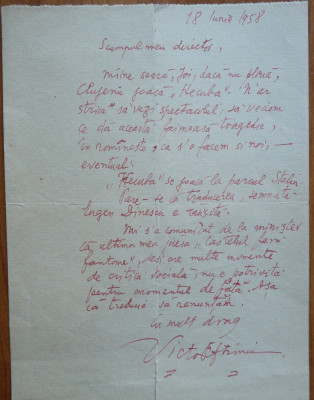 18 Iunie 1958
Scumpul meu director,
Mîine seară, joi, dacă nu plouă,
Eugenia joacă „Hecuba". N'ar
strica să vezi spectacolul. să vedem
ce dă această faimoasă tragedie,
în românește, ca s'o facem și noi, —
eventual.
„Hecuba" se joacă la parcul Stalin.
Pare-se că traducerea, semnată
Eugen Dinescu e reușită.
Mi s'a comunicat de la minister
că ultima mea piesă „Castelul fără
fantome", deși are multe momente
de critică socială, nu e potrivită
pentru momentul de față. Așa
că trebuie să renunțăm.
Cu mult drag
Victor Eftimiu